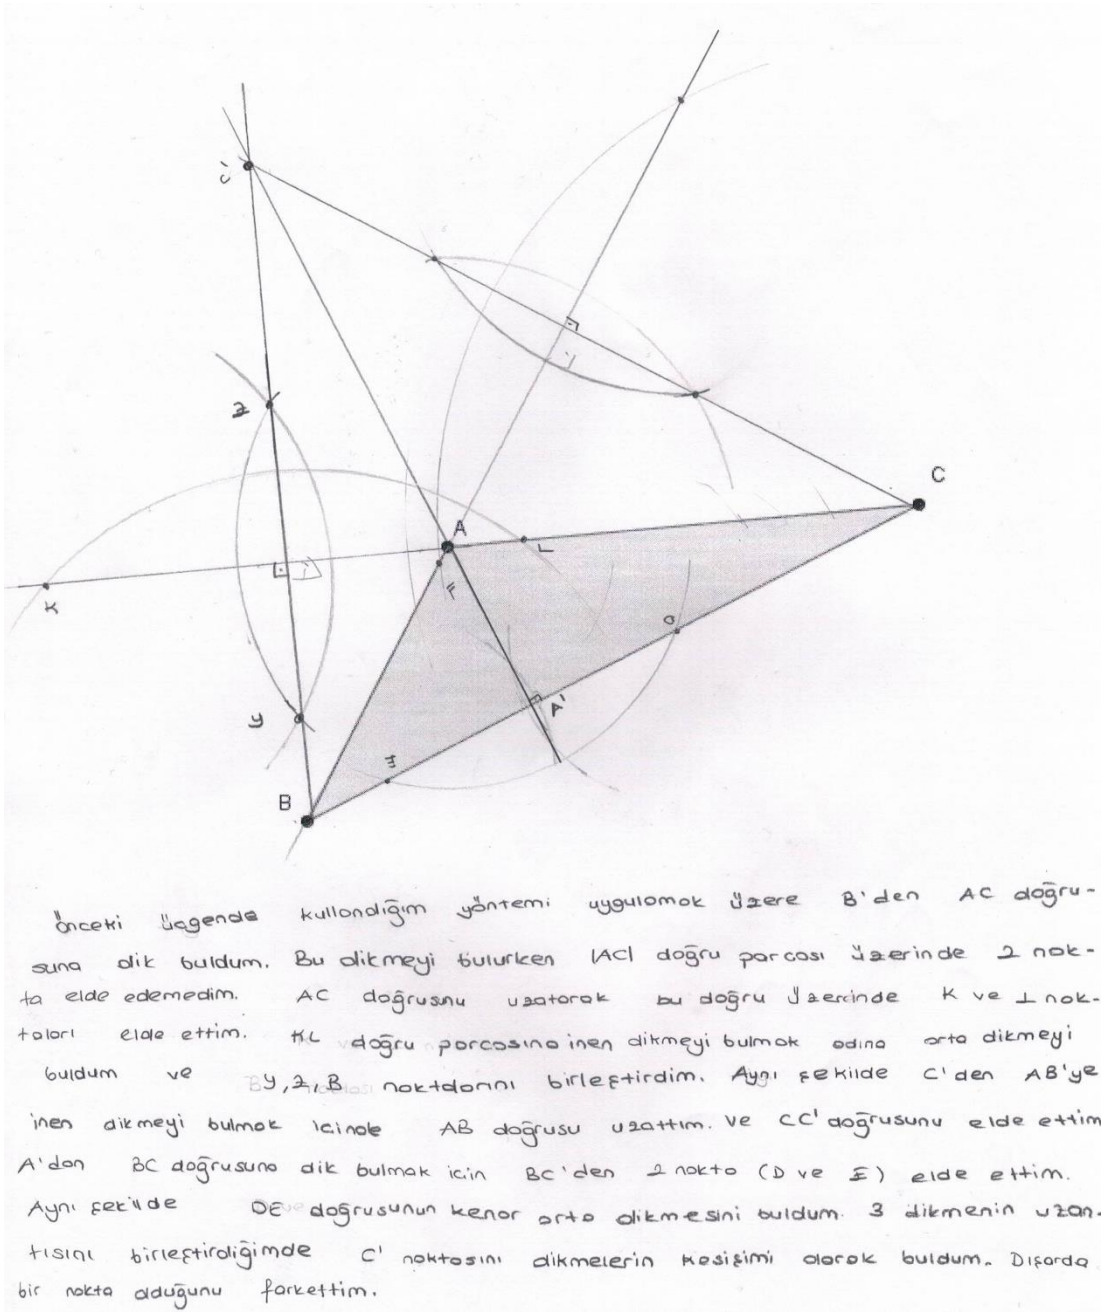 C'
Z
A
C
K
L
F
D
Y
A'
E
B
Önceki üçgende kullandığım yöntemi uygulamak üzere B'den AC doğru-
suna dik buldum. Bu dikmeyi bulurken |AC| doğru parçası üzerinde 2 nok-
ta elde edemedim. AC doğrusunu uzatarak bu doğru üzerinde K ve L nok-
taları elde ettim. KL doğru parçasına inen dikmeyi bulmak adına orta dikmeyi
buldum ve Y, Z, B noktalarını birleştirdim. Aynı şekilde C'den AB'ye
inen dikmeyi bulmak içinde AB doğrusu uzattım. ve CC' doğrusunu elde ettim
A'dan BC doğrusuna dik bulmak için BC'den 2 nokta (D ve E) elde ettim.
Aynı şekilde DE doğrusunun kenar orta dikmesini buldum. 3 dikmenin uzan-
tısını birleştirdiğimde C' noktasını dikmelerin kesişimi olarak buldum. Dışarda
bir nokta olduğunu farkettim.